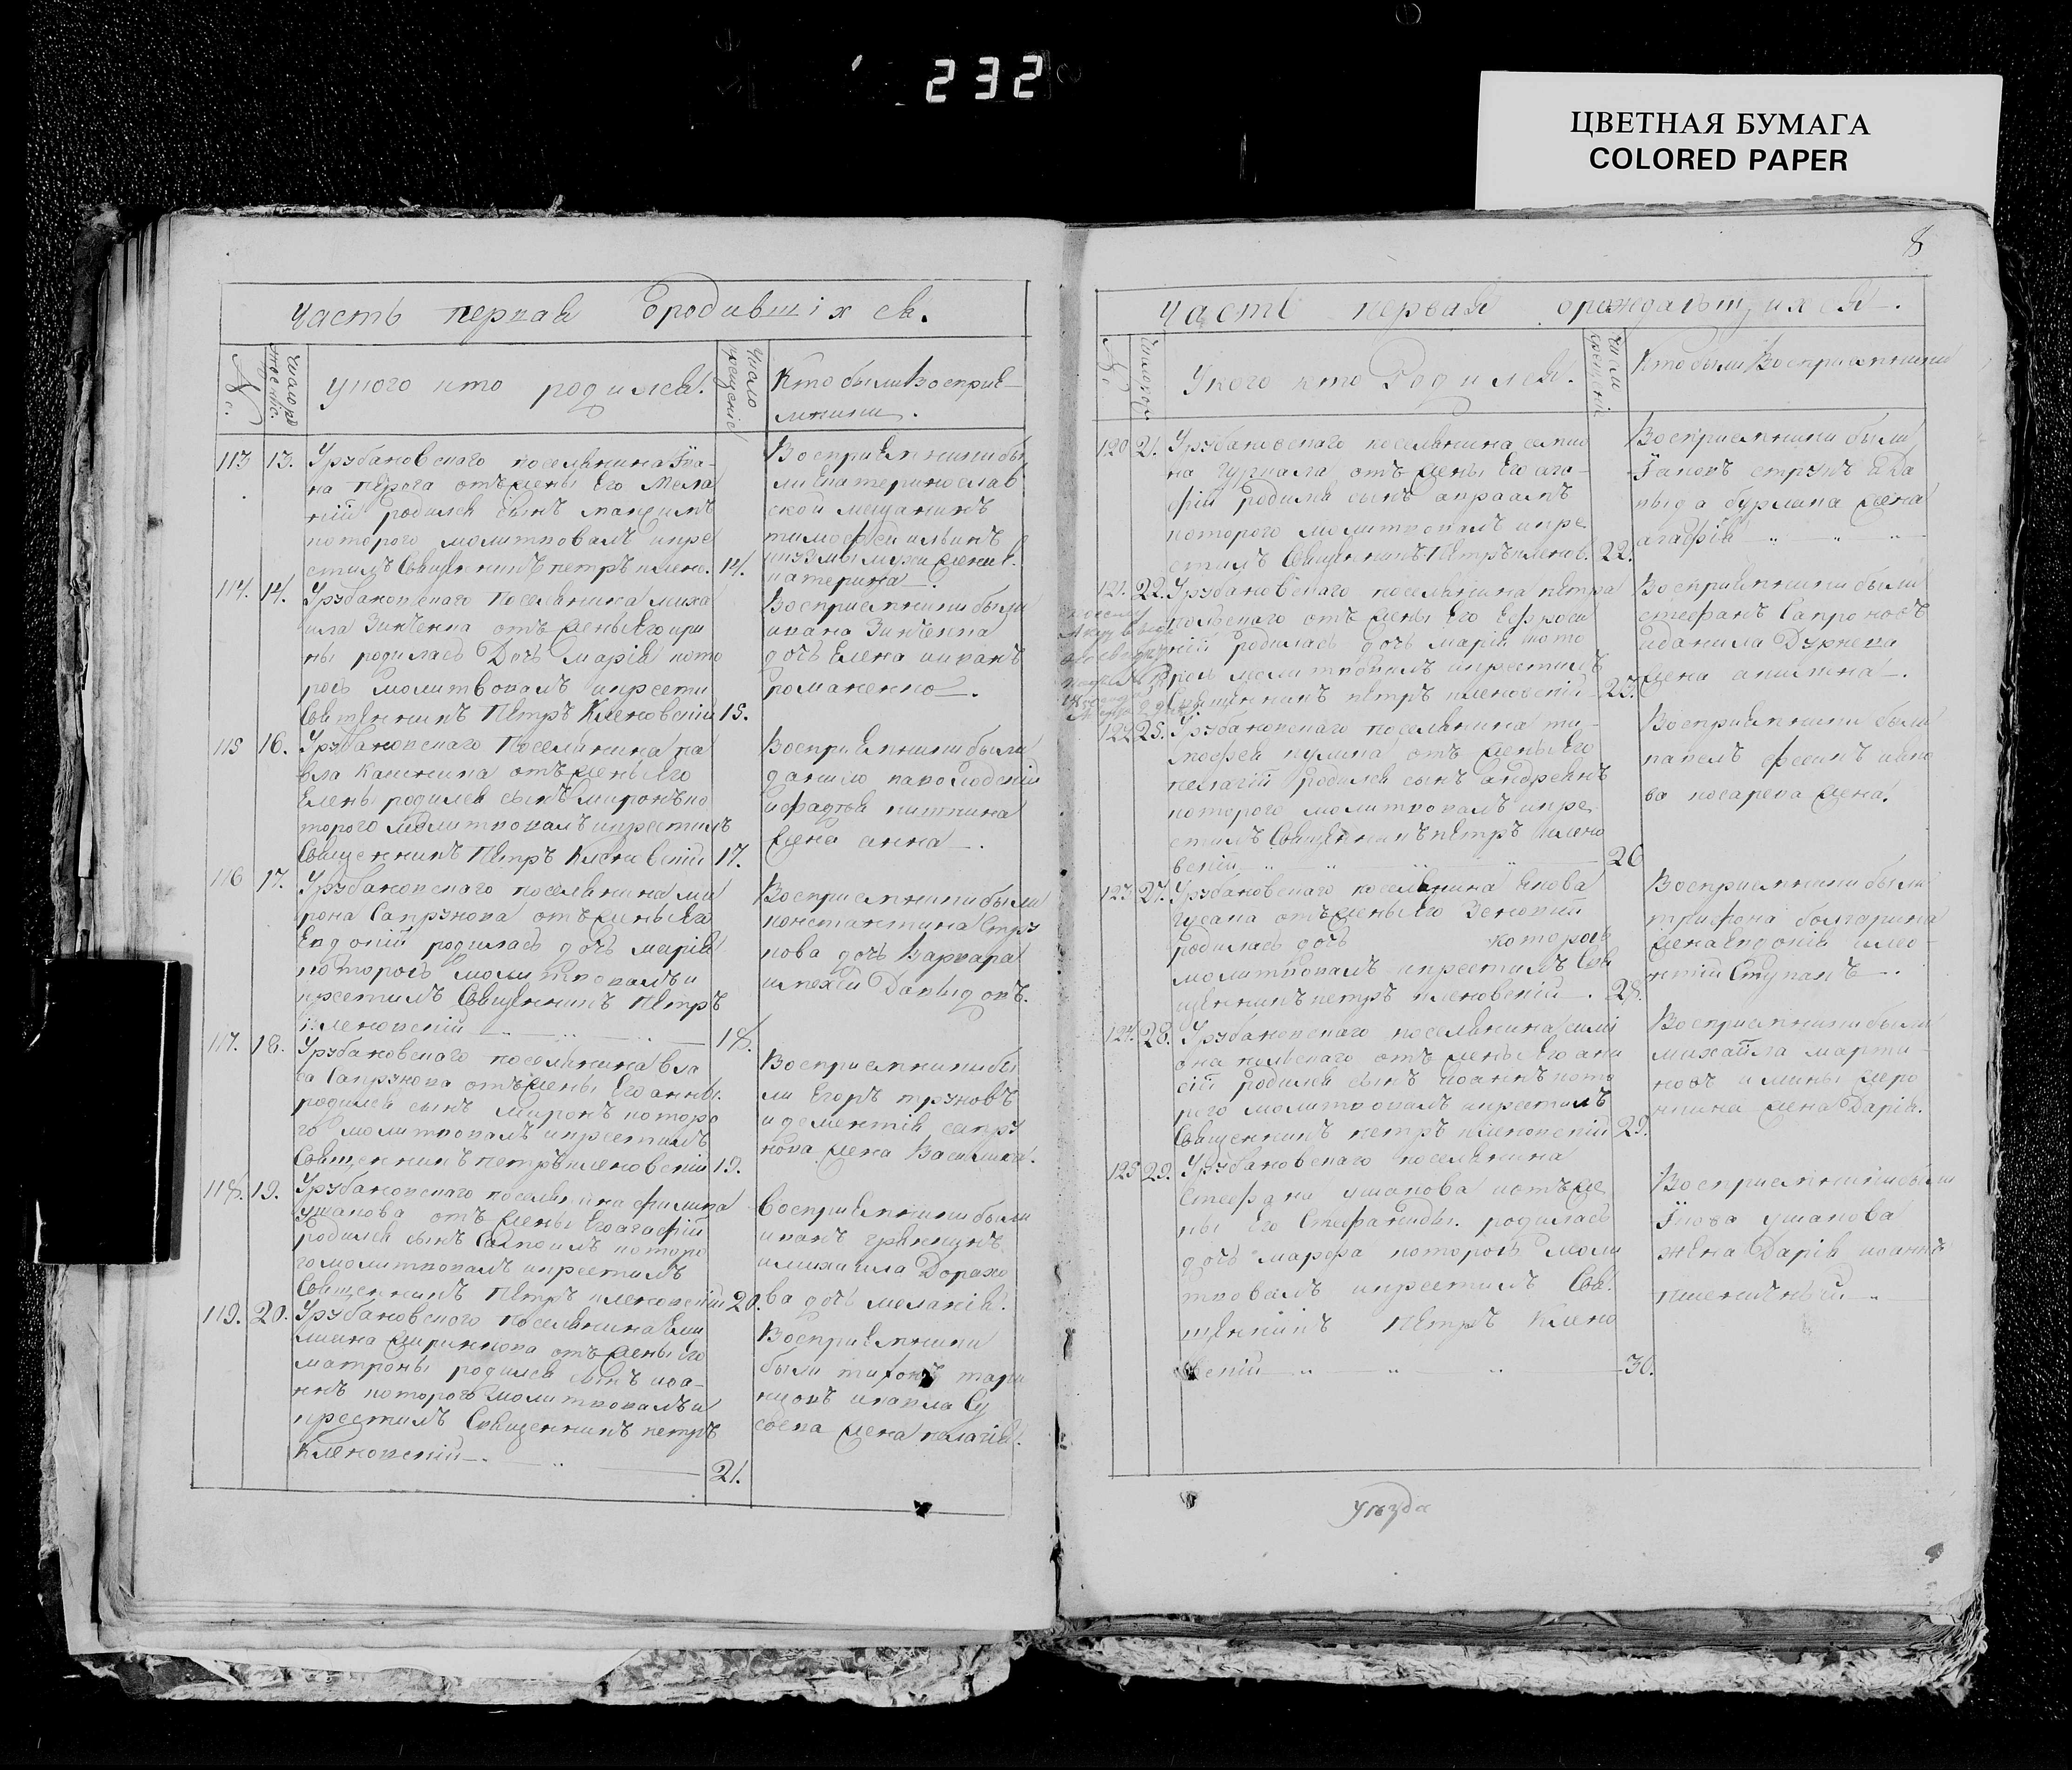 232
ЦВЕТНАЯ БУМАГА
COLORED PAPER
Часть первая Ородившіхся.
№
Число рождніе.
У кого кто родился.
Число крещеніе
Кто были восприе-
мники.
113 13. Урубановскаго поселянина
на пирога отъ жены Его Мела
ніи родился сынъ максимъ
котораго молитвовалъ икре
стилъ Священникъ петръ клено. 14.
Восприемники бы
ли Екатеринослав
ской мещанинъ
тимофей ильинъ
жена Е.
катерина.
114. 14. Урубановскаго Поселянина миха
ила Зинченка отъ жены Его ири
ны родилась Дочь марія кото
рою молитвовалъ икрести
Священникъ Петръ Кленовскій 15.
Восприемники были
ивана Зинченка
дочь Елена ииванъ
романенко.
115 16. Урубановскаго Поселянина па
вла отъ жены Его
Елены родился сынъ миронъ ко
тораго молитвовалъ икрестилъ
Священникъ Петръ Кленовскій 17.
Восприемники были
данило
ифадѣя никитина
жена анна.
116 17. Урубановскаго поселянина ми
рона Сапрунова отъ жены Его
Евдокіи родилась дочь марія
которою молитвовалъ и
крестилъ Священникъ Петръ
кленовскій 18.
Восприемники были
константина Стру
кова дочь Варвара
иалехѣй Давыдовъ.
117. 18. Урубановскаго поселянина вла
са Сапрунова отъ жены Его анны.
родился сынъ Миронъ которо
го молитвовалъ икрестилъ
Священникъ петръ кленовскій 19.
Восприемники бы
ли Егоръ труновъ
идементія сапру
нова жена Василиса.
118. 19. Урубановскаго поселянина филипа
ушакова отъ жены Его агафіи
родился сынъ которо
го молитвовалъ икрестилъ
Священникъ Петръ кленовскій 20.
Восприемники были
иванъ
имихаила Дорохо
ва дочь меланія.
119. 20. Урубановскаго поселянина Еми
лиана отъ жены Его
матроны родился сынъ иоа-
ннъ котораго молитвовалъ и
крестилъ Священникъ петръ
Кленовскій. 21.
Восприемники
были тихонъ
ипавла Су
соева жена пелагія.
8
Часть первая орождающихся.
№
У кого кто Родился.
Кто были Восприемники
120 21. Урубановскаго поселянина семио
на отъ жены Его ага-
фіи родился сынъ авраамъ
котораго молитвовалъ икре
стилъ Священникъ Петръ кленов. 22.
Восприемники были
Іаковъ струкъ ида
выда бурлака жена
агафія
121. 22. Урубановскаго поселянина петра
польскаго отъ жены Его Ефроси
ніи родилась дочь марія кото
рою молитвовалъ икрестилъ
Священникъ петръ кленовскій 23.
Восприемники были
стефанъ Сапроновъ
иданила Дурнева
жена акилина.
122 25. Урубановскаго поселянина ти-
мофея кулика отъ жены Его
пелагіи родился сынъ андреянъ
котораго молитвовалъ икре
стилъ Священникъ петръ клено
вскій 26
Восприемники были
павелъ фесикъ ияко
ва косарева жена.
123 27. Урубановскаго поселянина Якова
Гусака отъ жены Его Зеновіи
родилась дочь которою
молитвовалъ икрестилъ Свя
щенникъ петръ кленовскій. 28.
Восприемники были
трифона болгарина
жена Евдокія илео-
нтій Ступакъ.
124. 28. Урубановскаго поселянина сими
она польскаго отъ жены Его ани
сіи родился сынъ Иоаннъ кото
раго молитвовалъ икрестилъ
Священникъ петръ кленовскій 29.
Восприемники были
михаила марти-
новъ
жена Дарія.
125 29. Урубановскаго поселянина
Стефана ушакова иотъ же
ны Его Стефаниды. родилась
дочь марфа которою моли
твовалъ икрестилъ Свя
щенникъ Петръ Клено
вскій 30.
Восприемники были
Іакова ушакова
жена Дарія иоаннъ
пшеничный
уѣзда